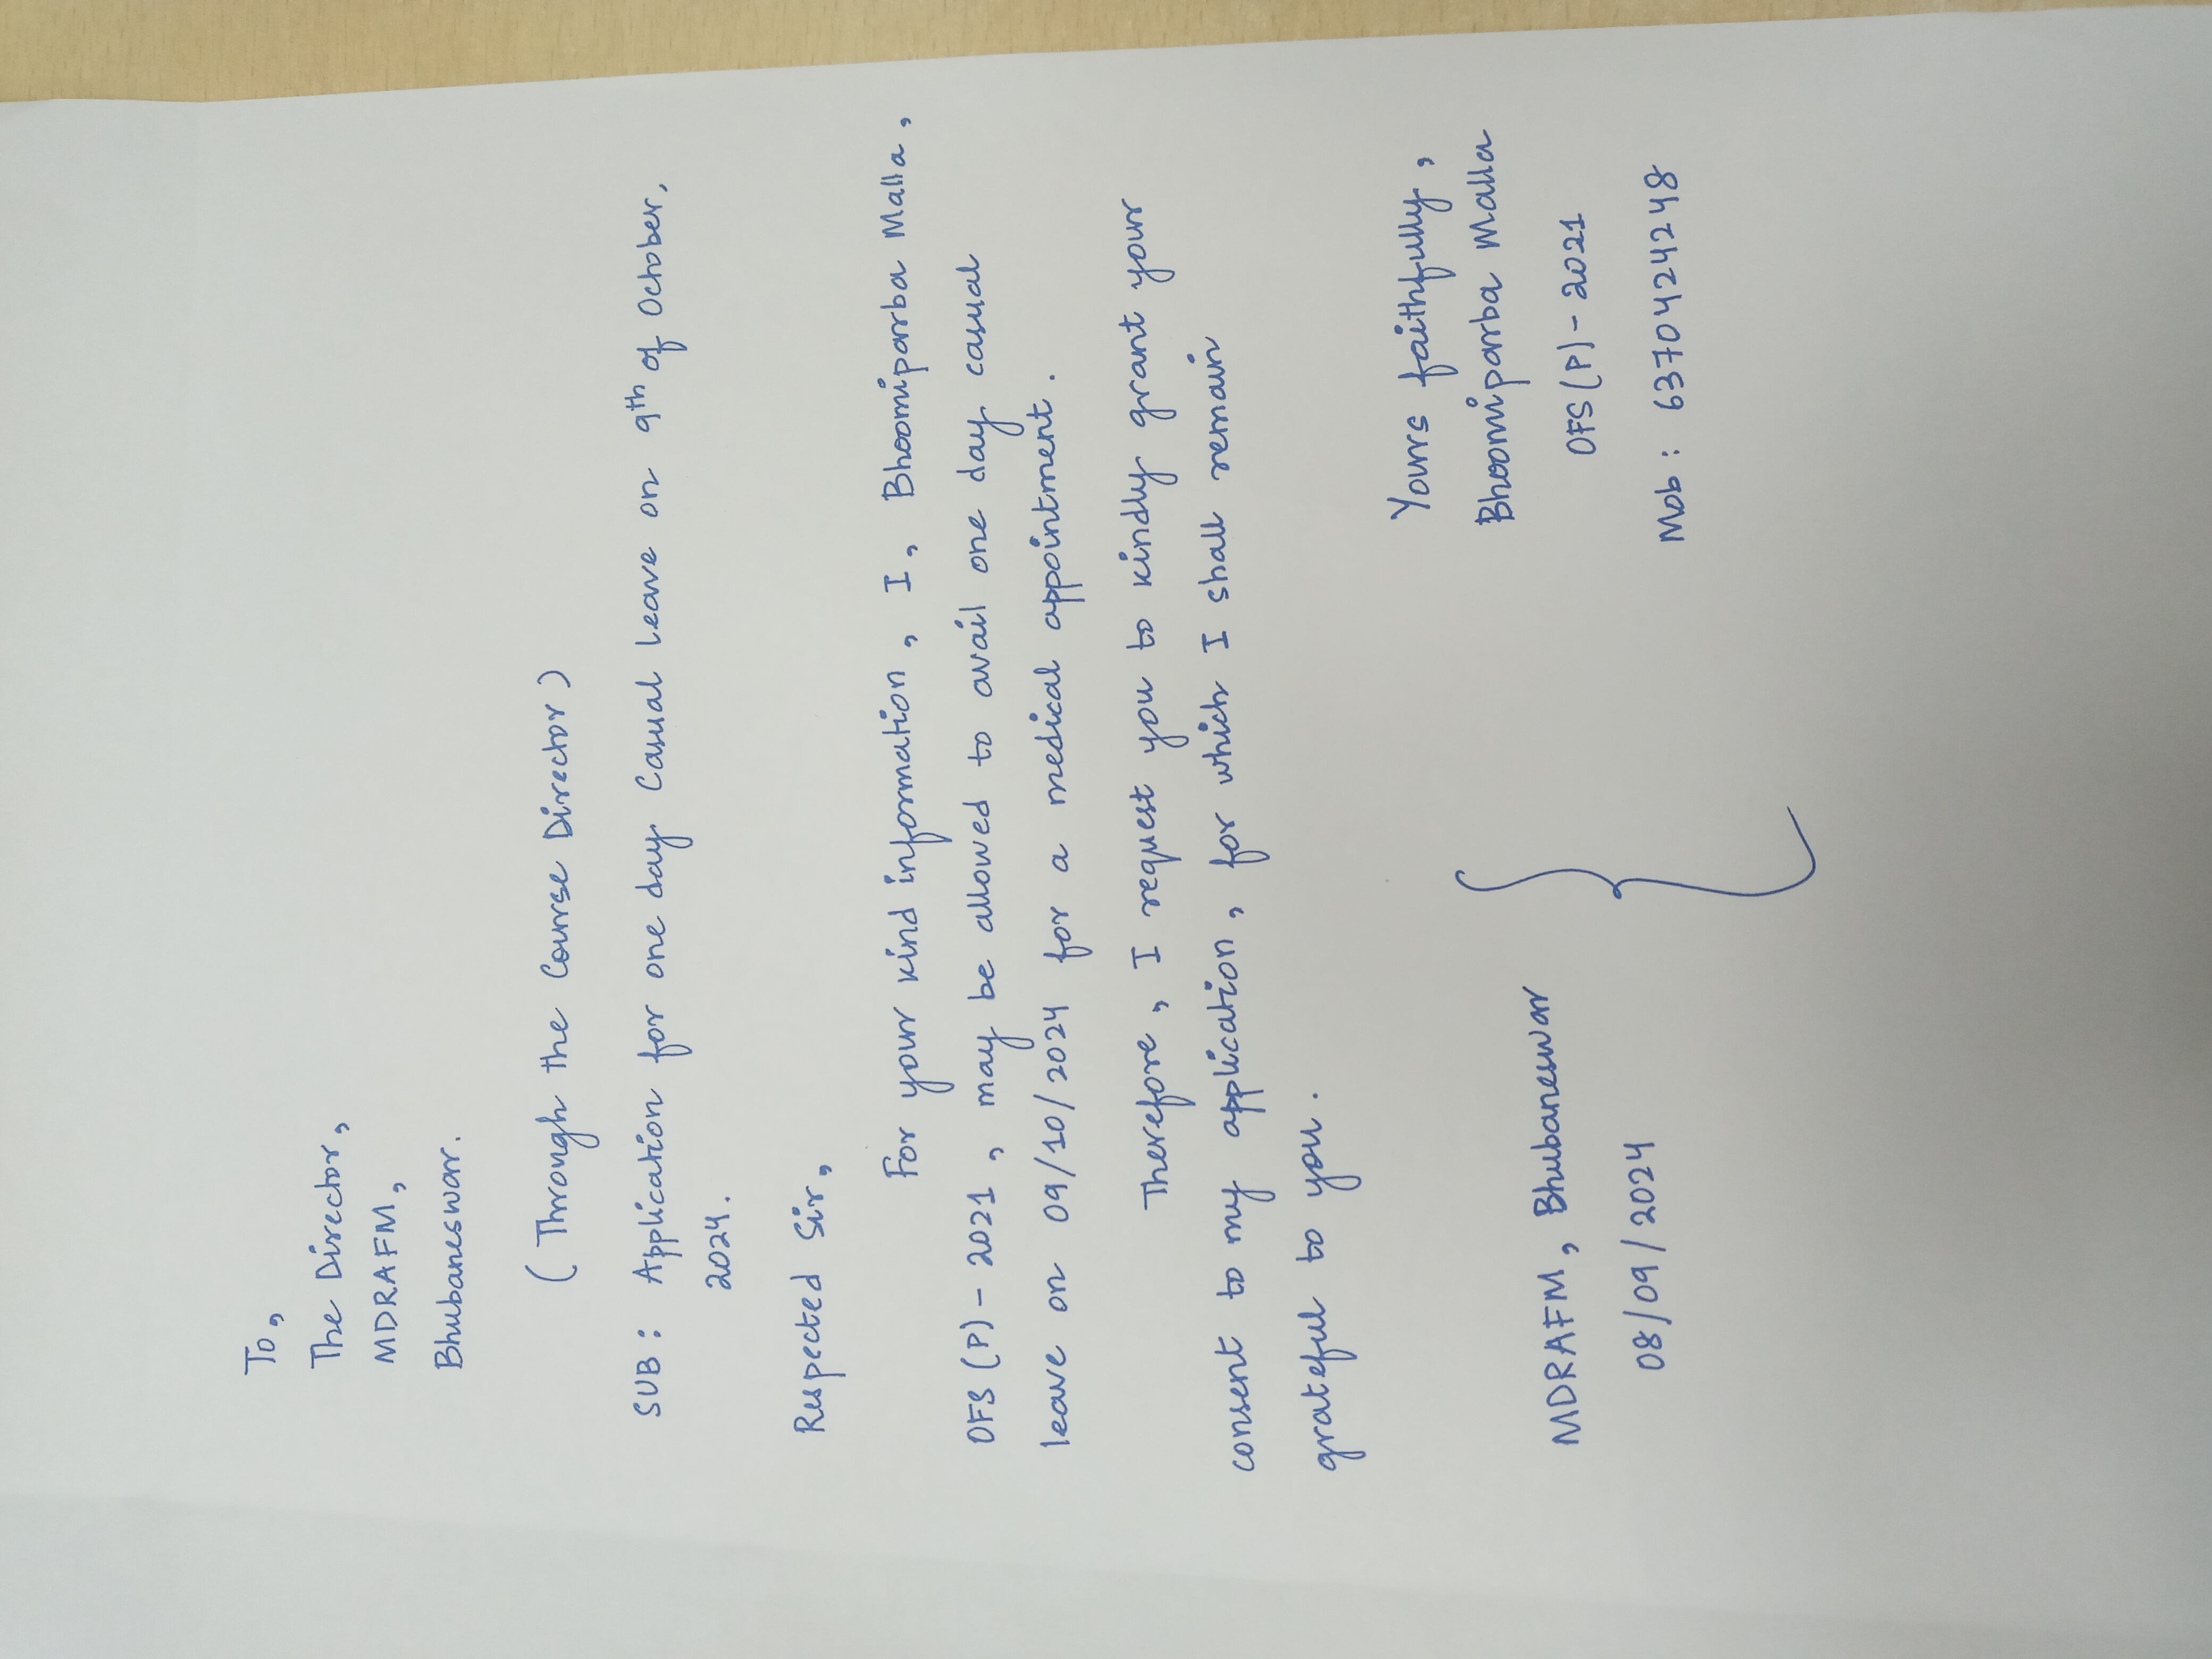 To,
The Director,
MDRAFM,
Bhubaneswar.
(Through the Course Director)
SUB: Application for one day Casual leave on 9th of October,
2024.
Respected Sir,
For your kind information, I, Bhoomiparba Malla,
OFS (P) - 2021, may be allowed to avail one day casual
leave on 09/10/2024 for a medical appointment.
Therefore, I request you to kindly grant your
consent to my application, for which I shall remain
grateful to you.
Yours faithfully,
Bhoomiparba Malla
OFS (P) - 2021
Mob: 6370424248
MDRAFM, Bhubaneswar
08/09/2024